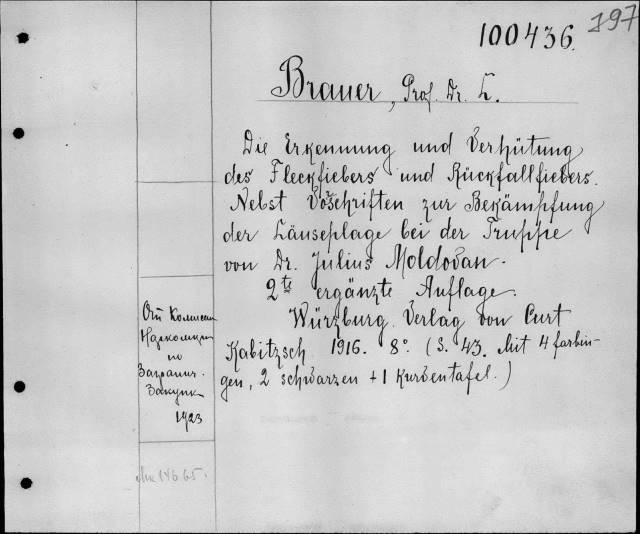 100436.
797
Brauer, Prof. Dr. L.
Die Erkennung und Verhütung
des Fleckfiebers und Rückfallfiebers.
Nebst Voschriften zur Bekämpfung
der Läuseplage bei der Truppe
von Dr. Julius Moldovan.
2te ergänzte Auflage.
Würzburg. Verlag von Curt
Kabitzsch 1916. 8° (S. 43. Mit 4 farbin-
gen, 2 schwarzen + 1 Kurventafel.)
От Комиссии
по
Загранич.
Закупк
1923
14665.